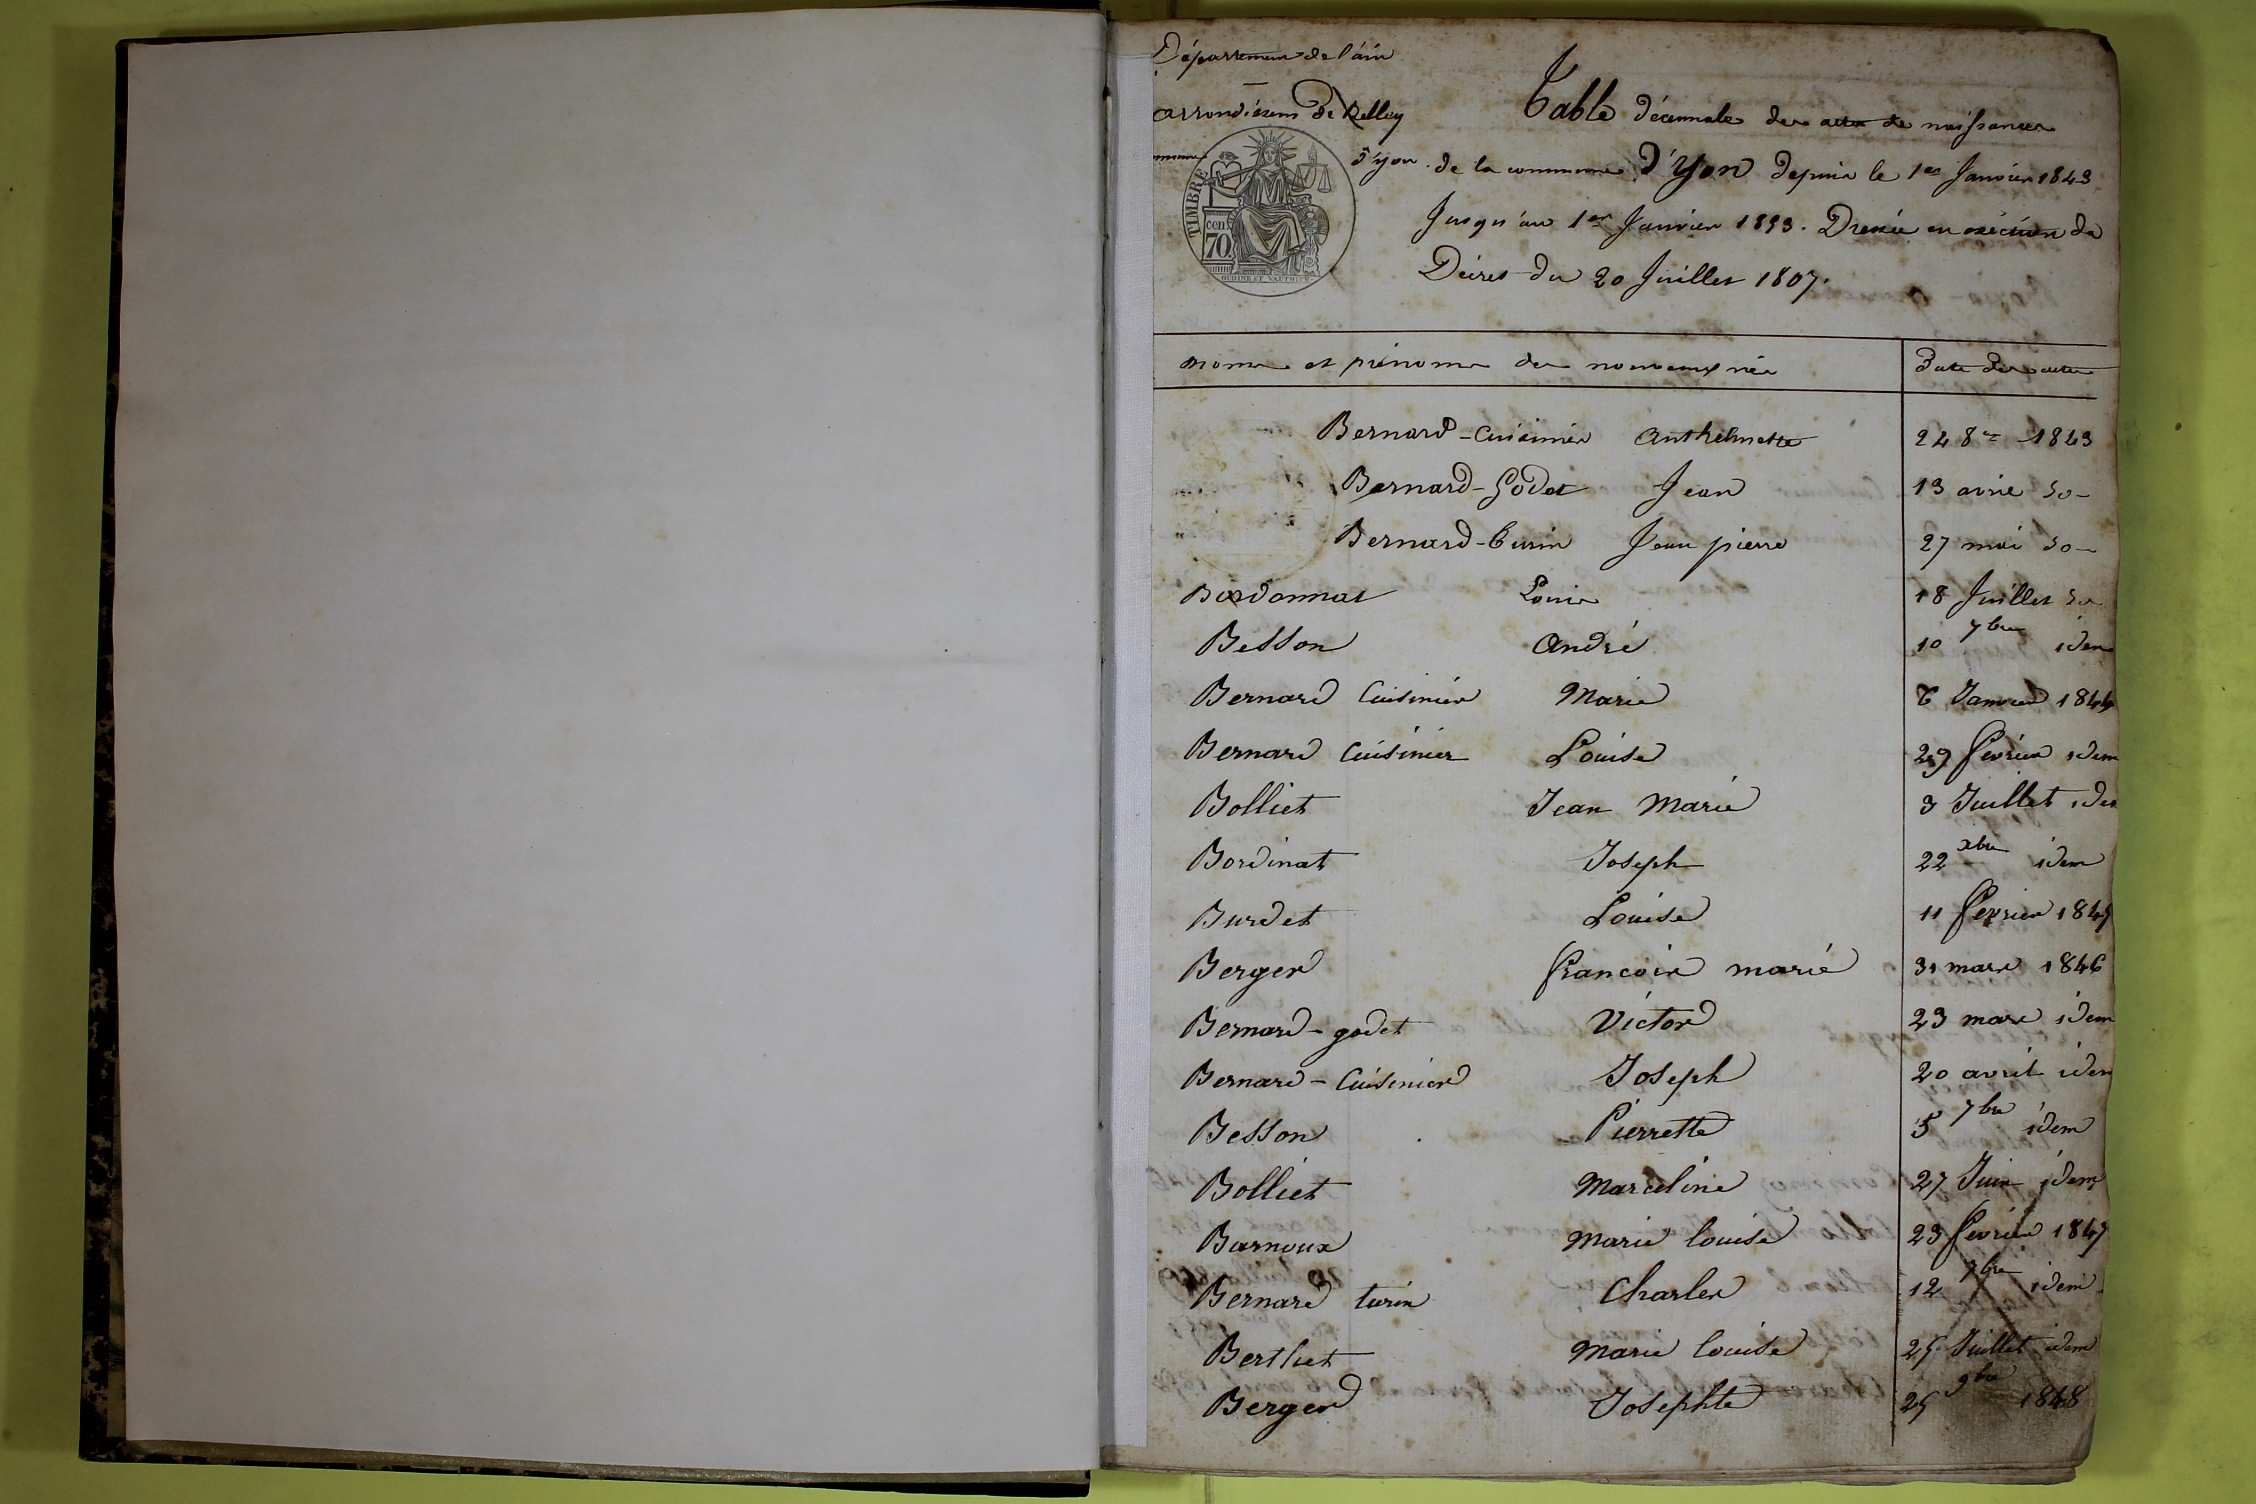 Département de l'ain
arrondissem de Belley
commune d'yon
TIMBRE
cen. 70.
Table décennale des actes de naissances
de la commune d'Yon depuis le 1er Janvier 1843
Jusqu'au 1er Janvier 1853. Dressée en exécution du
Décret du 20 Juillet 1807.
noms et prénoms des nouveaux nés date des actes
Bernard-Cuisinier anthelmette 24 8re 1843
Bernard-Godet Jean 13 avril do-
Bernard-turin Jean pierre 27 mai do-
Bordonnat Louis 18 Juillet do
Besson andré 10 7bre idem
Bernard Cuisinier Marie 6 Janvier 1844
Bernard Cuisinier Louise 29 fevrier idem
Bolliet Jean Marie 3 Juillet idem
Bordinat Joseph 22 xbre idem
Burdet Louise 11 fevrier 1845
Berger francois marie 31 mars 1846
Bernard-godet Victor 23 mars idem
Bernard-Cuisinier Joseph 20 avril idem
Besson Pierrette 5 7bre idem
Bolliet Marceline 27 Juin idem
Barnoux Marie louise 23 fevrier 1847
Bernard turin Charles 12 7bre idem
Berthet Marie louise 25 Juillet idem
Berger Josephte 25 9bre 1848